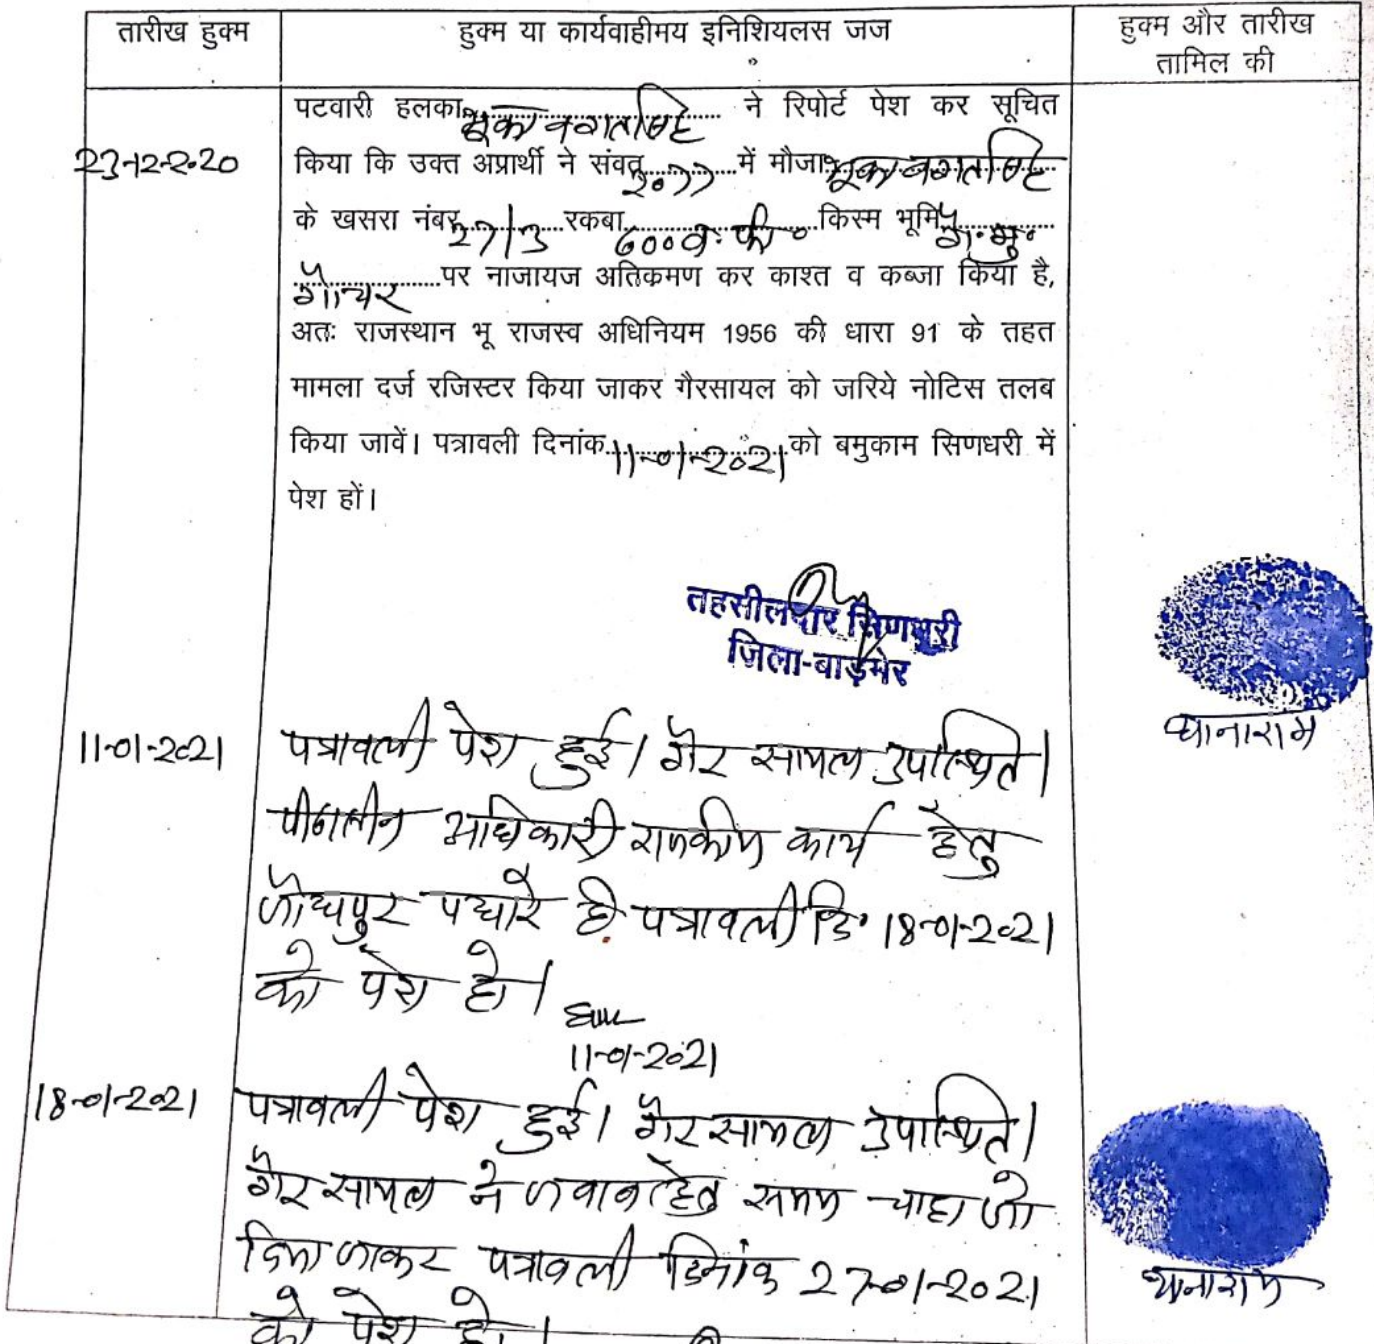 तारीख हुक्म
हुक्म या कार्यवाहीमय इनिशियलस जज
हुक्म और तारीख
तामिल की
23-12-2020
पटवारी हलका भूका भगतसिंह ने रिपोर्ट पेश कर सूचित
किया कि उक्त अप्रार्थी ने संवत् 2077 में मौजा भूका भगतसिंह
के खसरा नंबर 27/3 रकबा 600 व. फी. किस्म भूमि गै.मु.
गोचर पर नाजायज अतिकमण कर काश्त व कब्जा किया है,
अतः राजस्थान भू राजस्व अधिनियम 1956 की धारा 91 के तहत
मामला दर्ज रजिस्टर किया जाकर गैरसायल को जरिये नोटिस तलब
किया जावें। पत्रावली दिनांक 11-01-2021 को बमुकाम सिणधरी में
पेश हों।
तहसीलदार सिणधरी
जिला-बाड़मेर
11-01-2021
पत्रावली पेश हुई। गैर सायल उपस्थित।
पीठासीन अधिकारी राजकीय कार्य हेतु
जोधपुर पधारे है पत्रावली दि. 18-01-2021
को पेश हो।
11-01-2021
धानाराम
18-01-2021
पत्रावली पेश हुई। गैर सायल उपस्थित।
गैर सायल ने जवाब हेतु समय चाहा जो
दिया जाकर पत्रावली दिनांक 27-01-2021
को पेश हो।
धानाराम